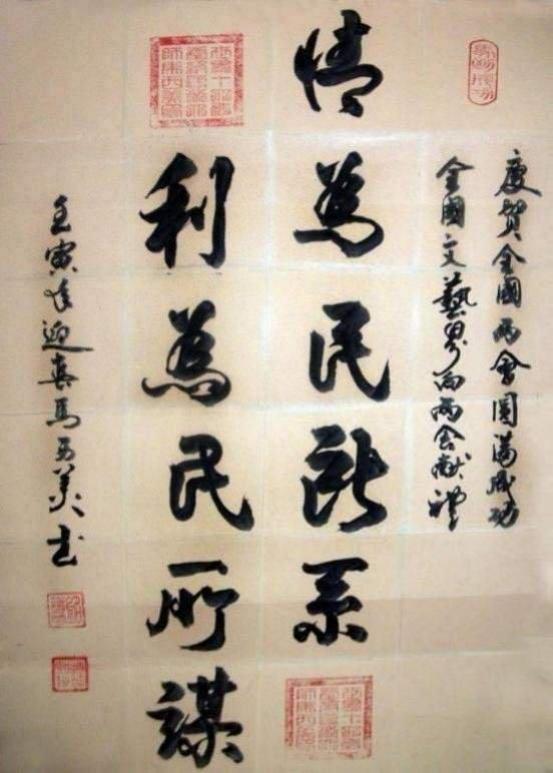 慶賀全國兩會圓滿成功
全國文藝界向兩會献禮
情為民所系
利為民所謀
壬寅年迎春馬万美书